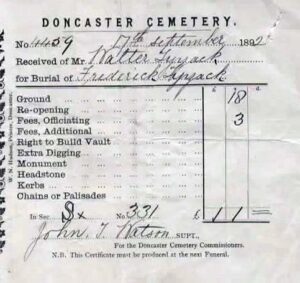 DONCASTER CEMETERY.
No. 4459 17th September 1892
Received of Mr. Walter
for Burial of Frederick
Ground 18
Re-opening
Fees, Officiating 3
Fees, Additional
Right to Build Vault
Extra Digging
Monument
Headstone
Kerbs
Chains or Palisades
In Sec. No. 331 £ 1 1
John. T. Watson SUPT.,
For the Doncaster Cemetery Commissioners.
N.B. This Certificate must be produced at the next Funeral.